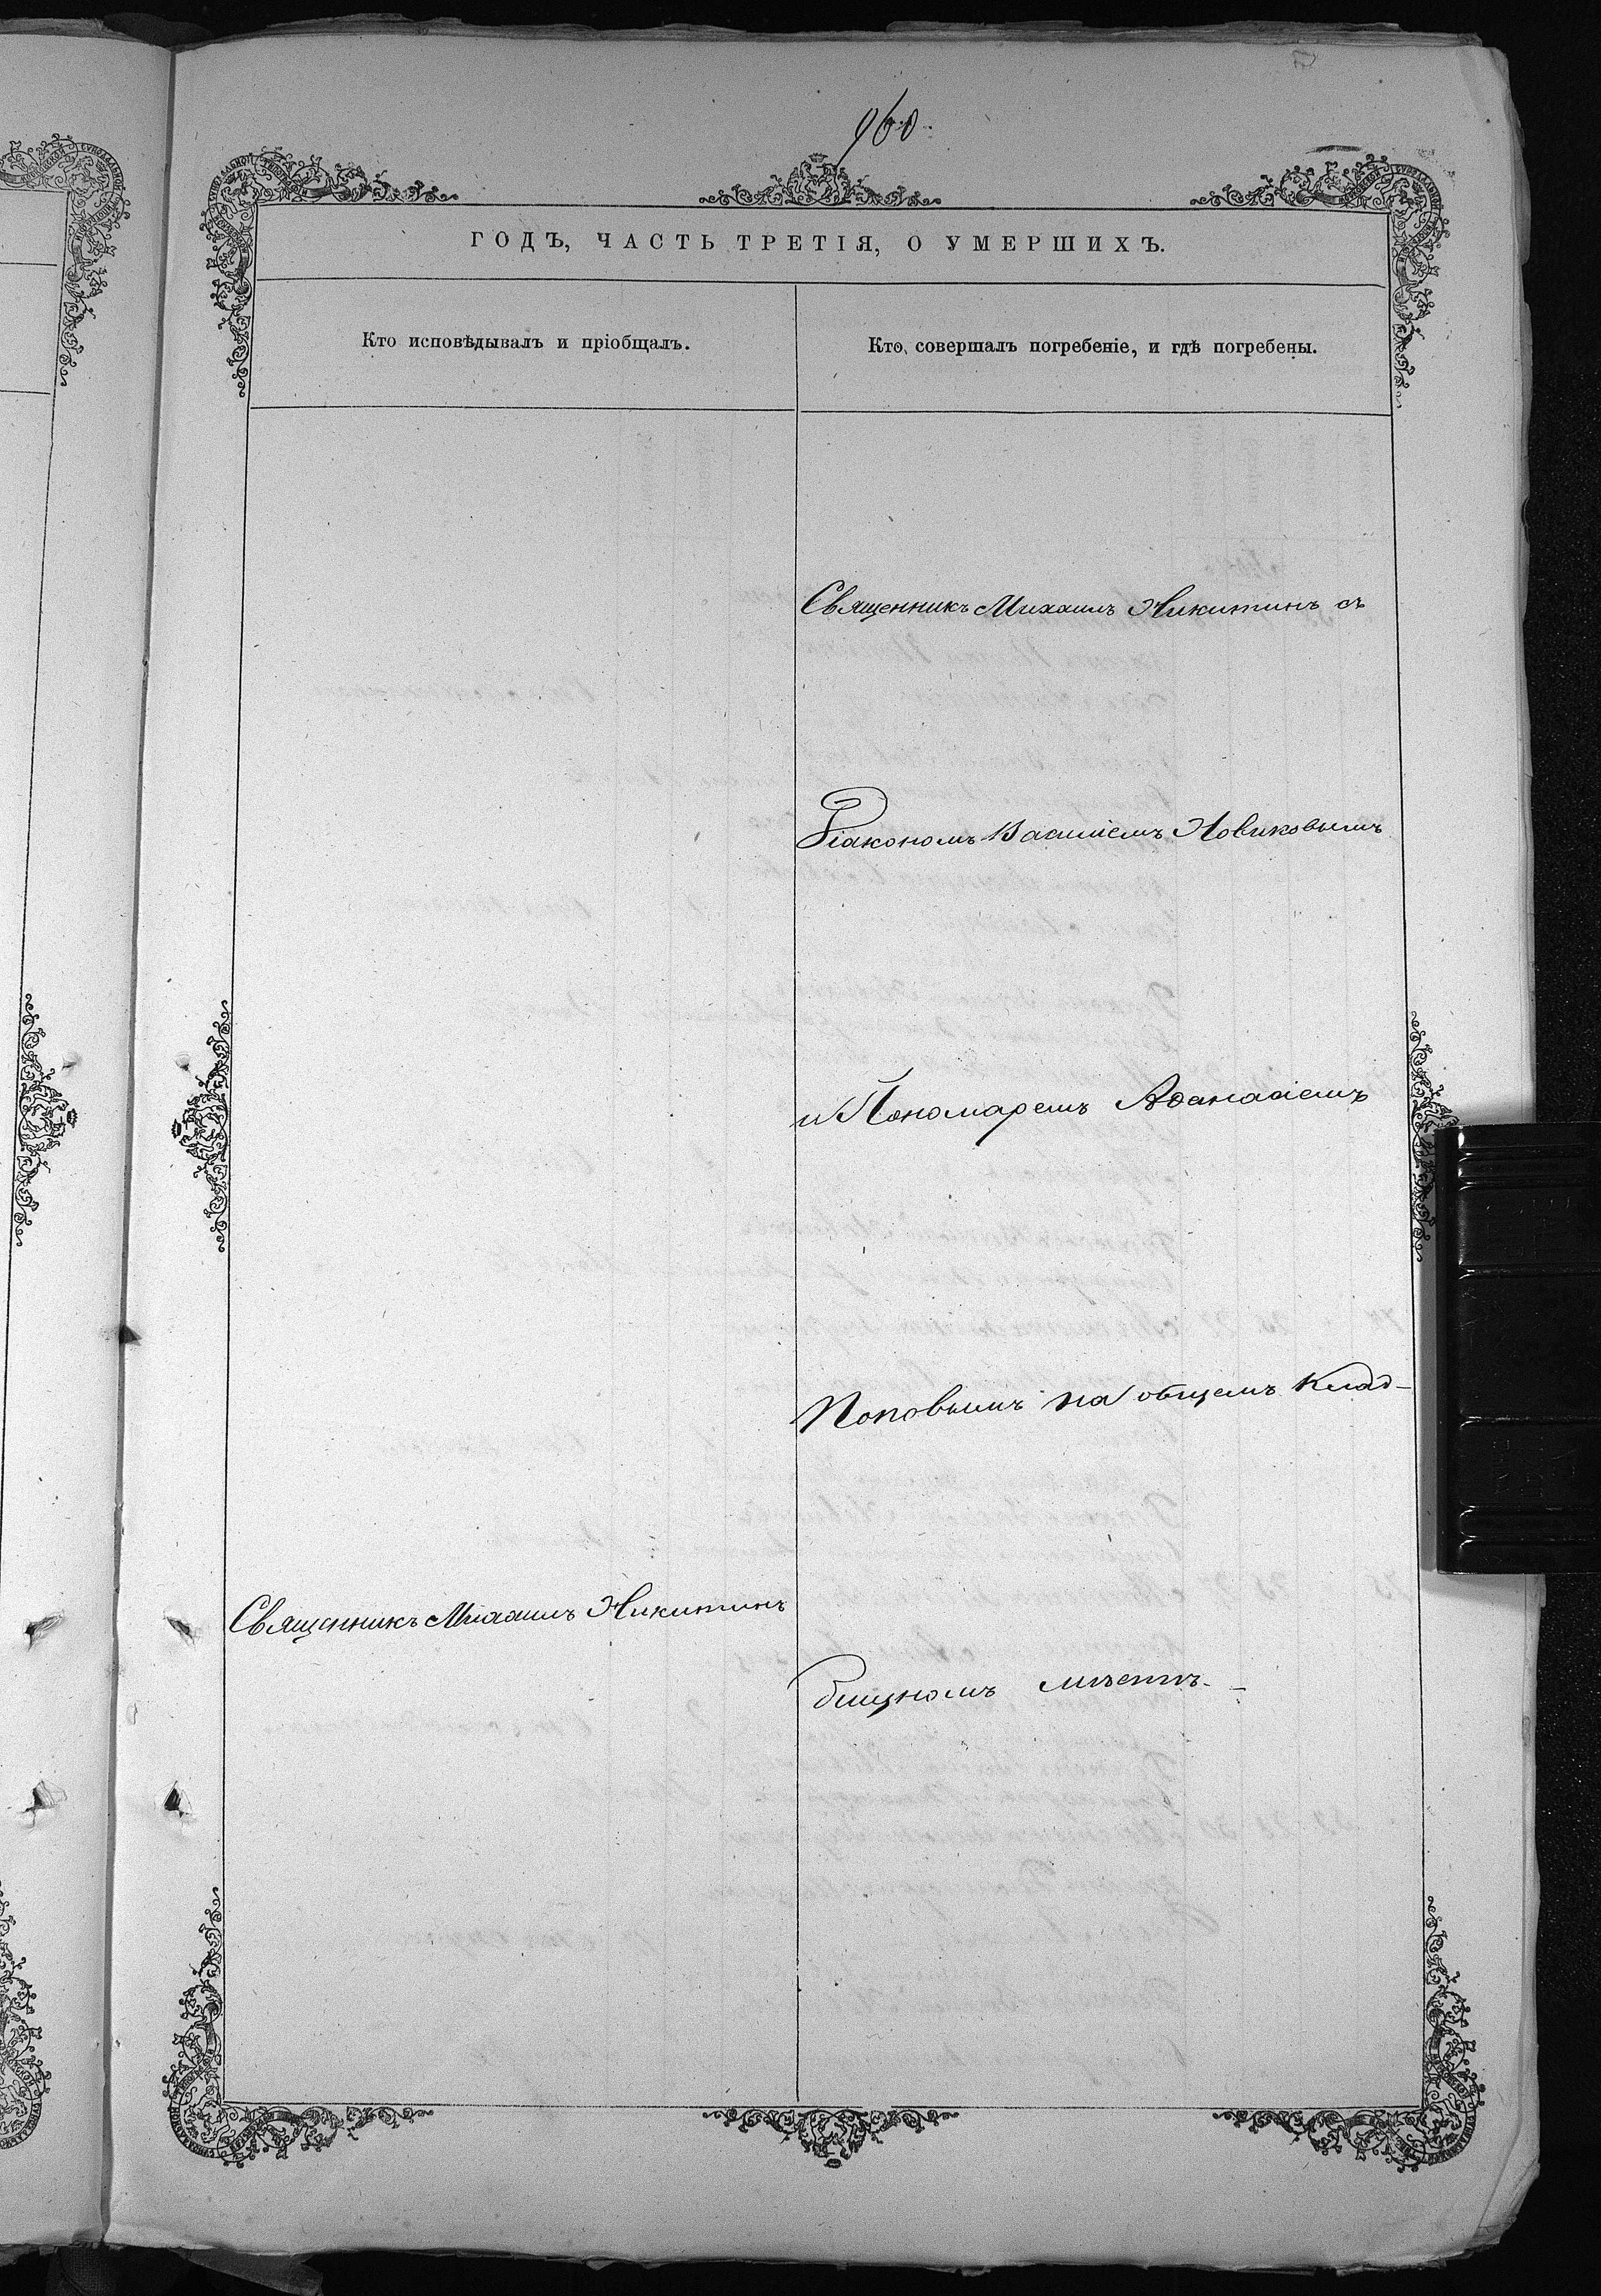 960.
ГОДЪ, ЧАСТЬ ТРЕТІЯ, О УМЕРШИХЪ.
Кто исповѣдывалъ и пріобщалъ.
Кто совершалъ погребеніе, и гдѣ погребены.
Священникъ Михаилъ Никитинъ съ
Діакономъ Василіемъ Новиковымъ
и Пономаремъ Аѳанасіемъ
Поповымъ на общемъ Клад-
бищномъ мѣстѣ. -
Священникъ Михаилъ Никитинъ